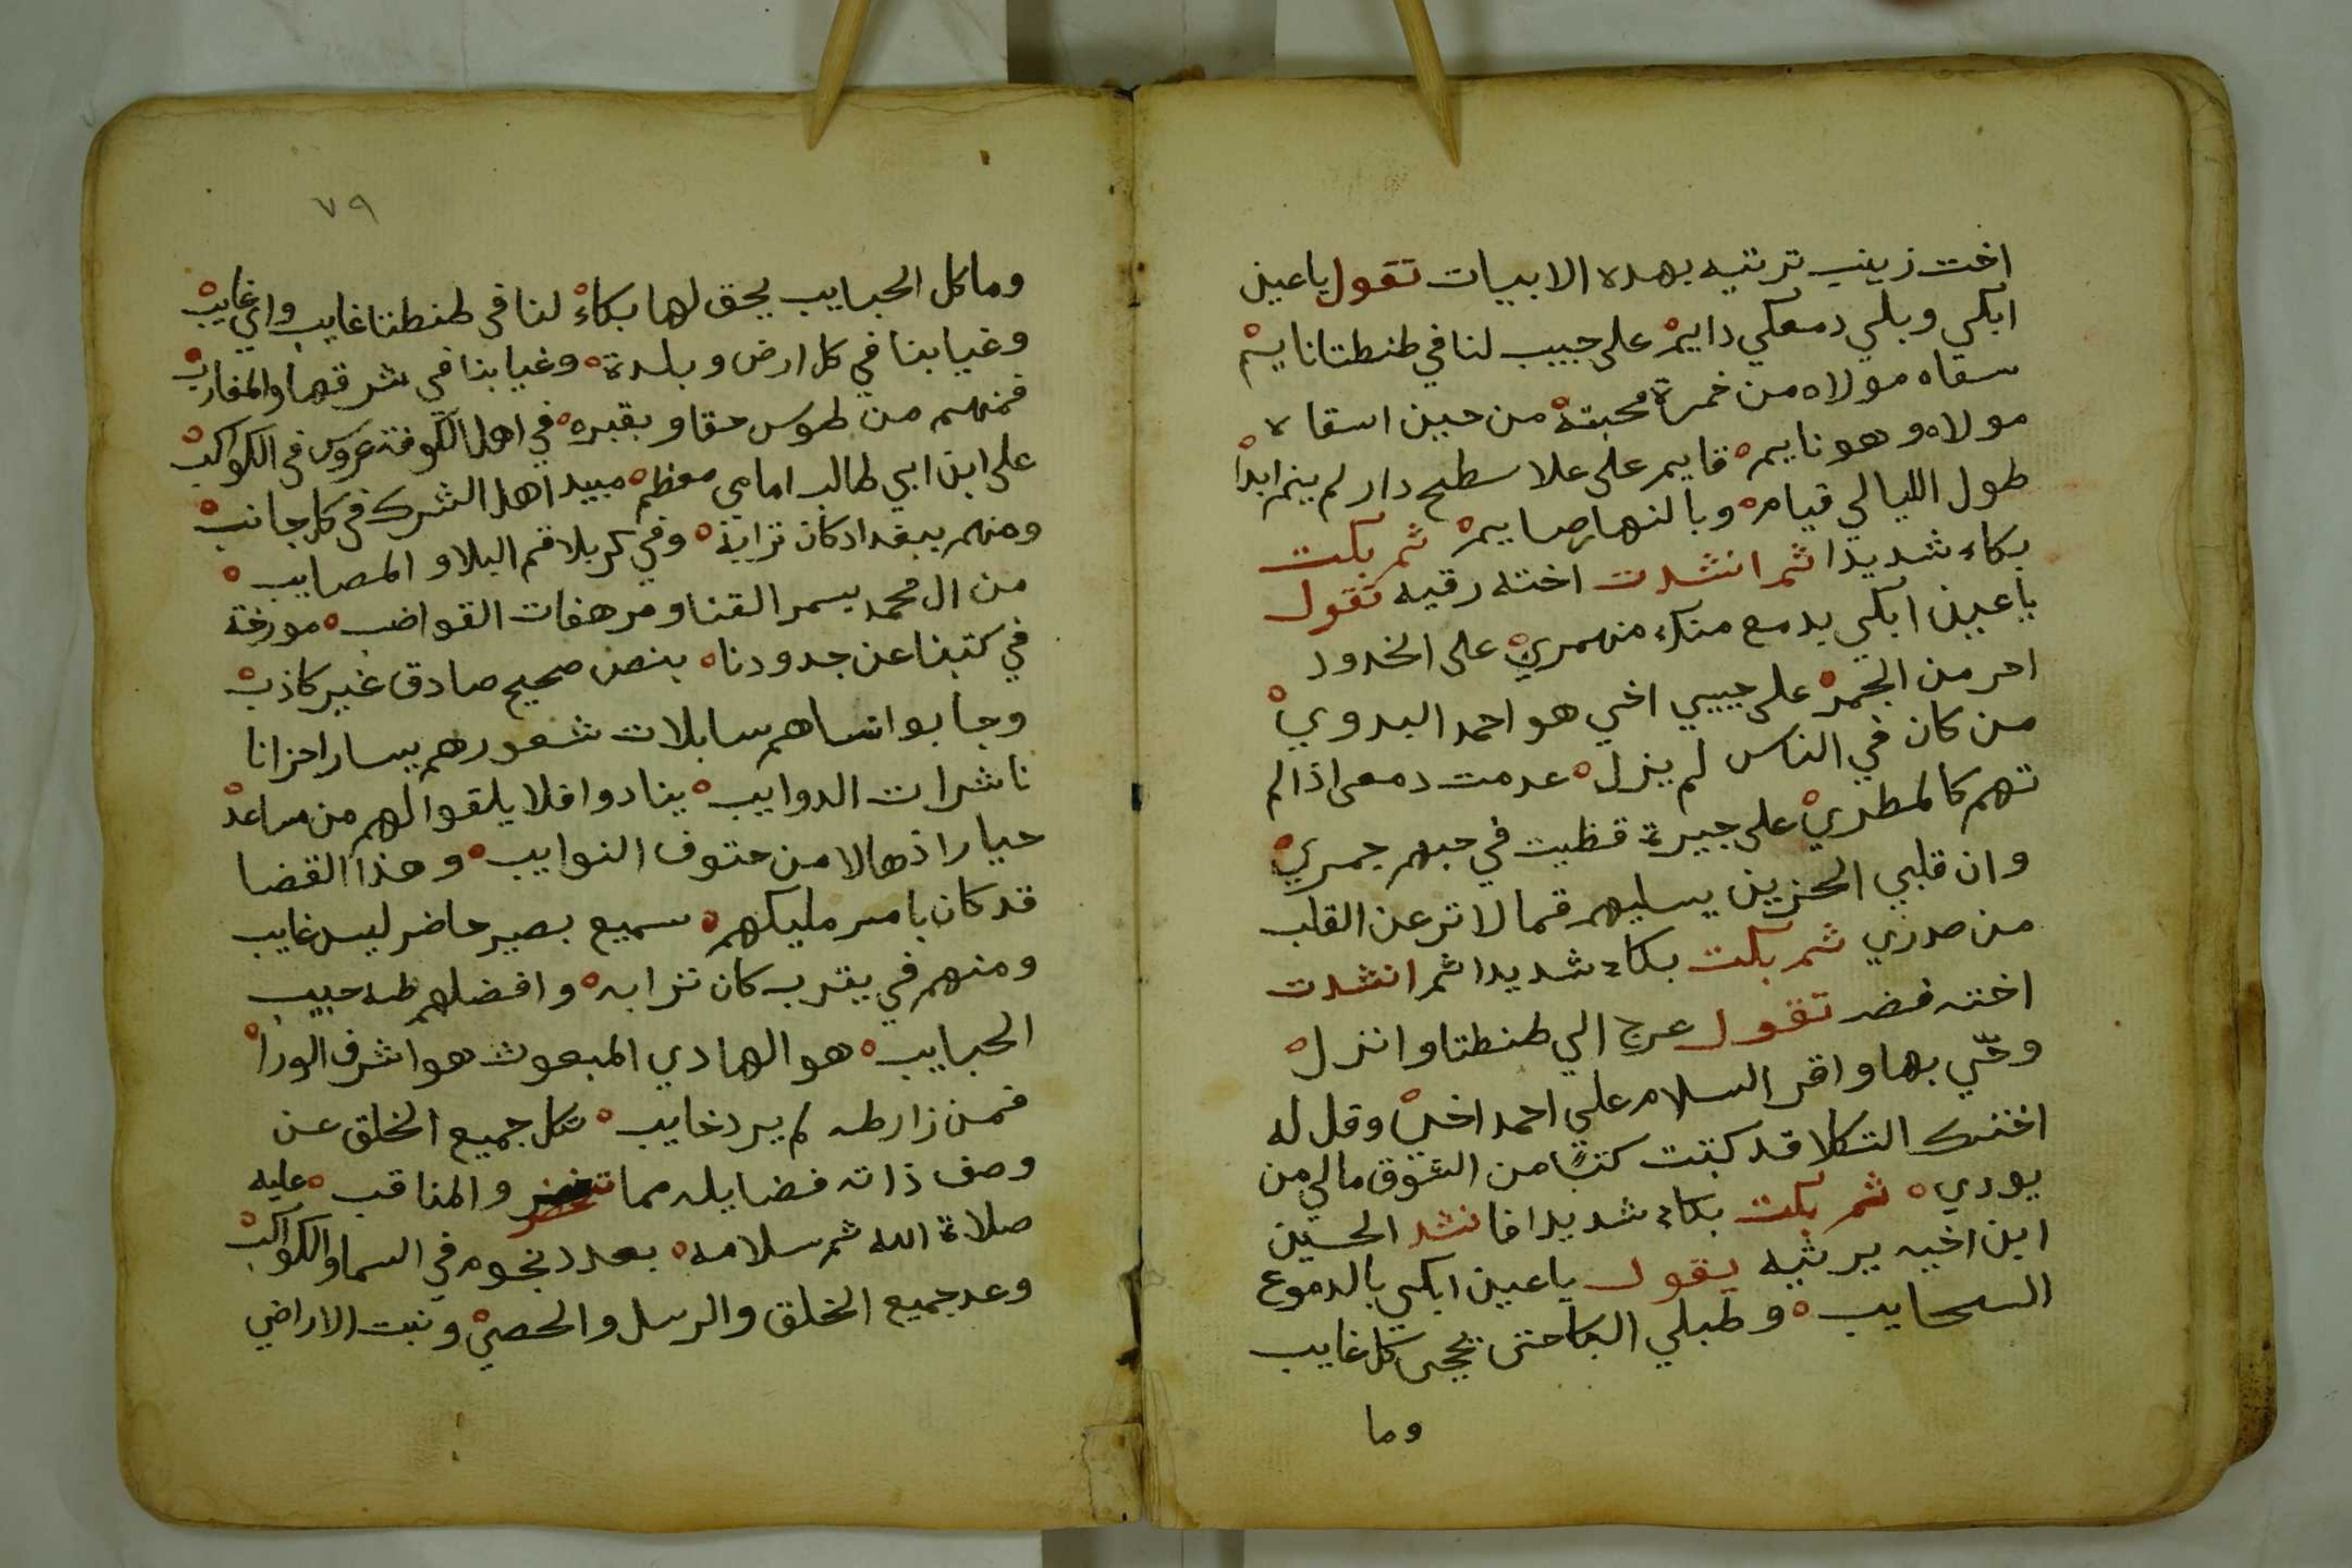 اخت زينب ترتيه بهده الابيات تقول ياعين
ابكي وبلي دمعكي دايم على حبيب لنا في طنطتا نايم
سقاه مولاه من خمرة محبته من حين اسقاه
مولاه وهو نايم قايم على علا سطح دار لم ينم ابدا
طول الليالي قيام وبالنهار صايم ثم بكت
بكاء شديدا ثم انشدت اخته رقيه تقول
ياعين ابكي بدمع منك منهمري على الخدود
احر من الجمر على حبيبي اخي هو احمد البدوي
من كان في الناس لم يزل عدمت دمعى اذا لم
تهم كالمطري على جيرة قظيت في حبهم جمري
وان قلبي الحزين يسليهم فما لا تر عن القلب
من صدري ثم بكت بكاء شديدا ثم انشدت
اخته فضه تقول عرج الي طنطتا وانزل
وحّي بها واقر السلام علي احمد اخي وقل له
اختك التكلا قد كتبت كتبًا من الشوق مالي من
يودي ثم بكت بكاء شديدا فانشد الحسين
ابن اخيه يرثيه يقول ياعين ابكي بالدموع
السحايب وطبلي البكا حتى تجى كل غايب
وما
٧٩
وما كل الحبايب يحق لها بكاء لنا في طنطتا غايب واي غايب
وغيابنا في كل ارض وبلدة وغيابنا في شرقها والمغارب
فمنهم من طوس حقا وبقبره في اهل الكوفة عروس في الكواكب
على ابن ابي طالب امامي معظم مبيد اهل الشرك في كل جانب
ومنهم ببغداد كان ترابة وفي كربلا قم البلا و المصايب
من ال محمد بسمر القنا ومرهفات القواضب مورخة
في كتبنا عن جدودنا بنص صحيح صادق غير كاذب
وجابوا نساهم سابلات شعورهم يسار احزانا
ناشرات الدوايب ينادوا فلا يلقوا لهم من مساعد
حيارا ذهالا من حتوف النوايب وهذا القضا
قد كان بامر مليكهم سميع بصير حاضر ليس غايب
ومنهم في يقرب كان ترابه وافضلهم طه حبيب
الحبايب هو الهادي المبعوث هو اشرف الورا
فمن زار طه لم يرد خايب تكل جميع الخلق عن
وصف ذاته فضايله مما تحصر والمناقب عليه
صلاة الله ثم سلامه بعدد نجوم في السما والكواكب
وعد جميع الخلق والرسل والحصي ونبت الاراضي